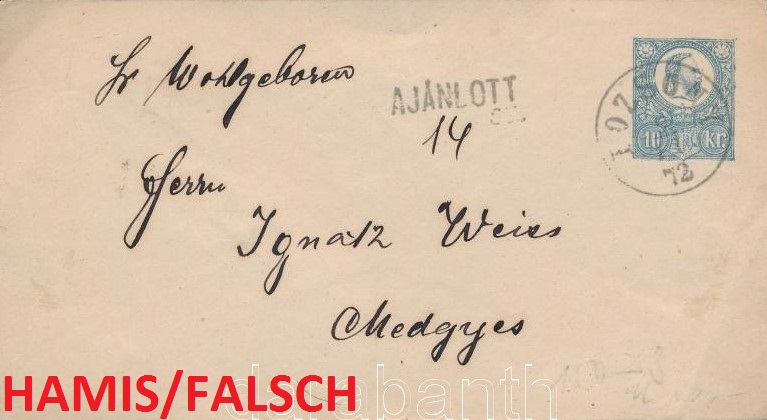 Sr Wohlgeboren
AJÁNLOTT
14
Herrn
Ignatz Weiss
Medgyes
10 Kr.
72
HAMIS/FALSCH
darabanth